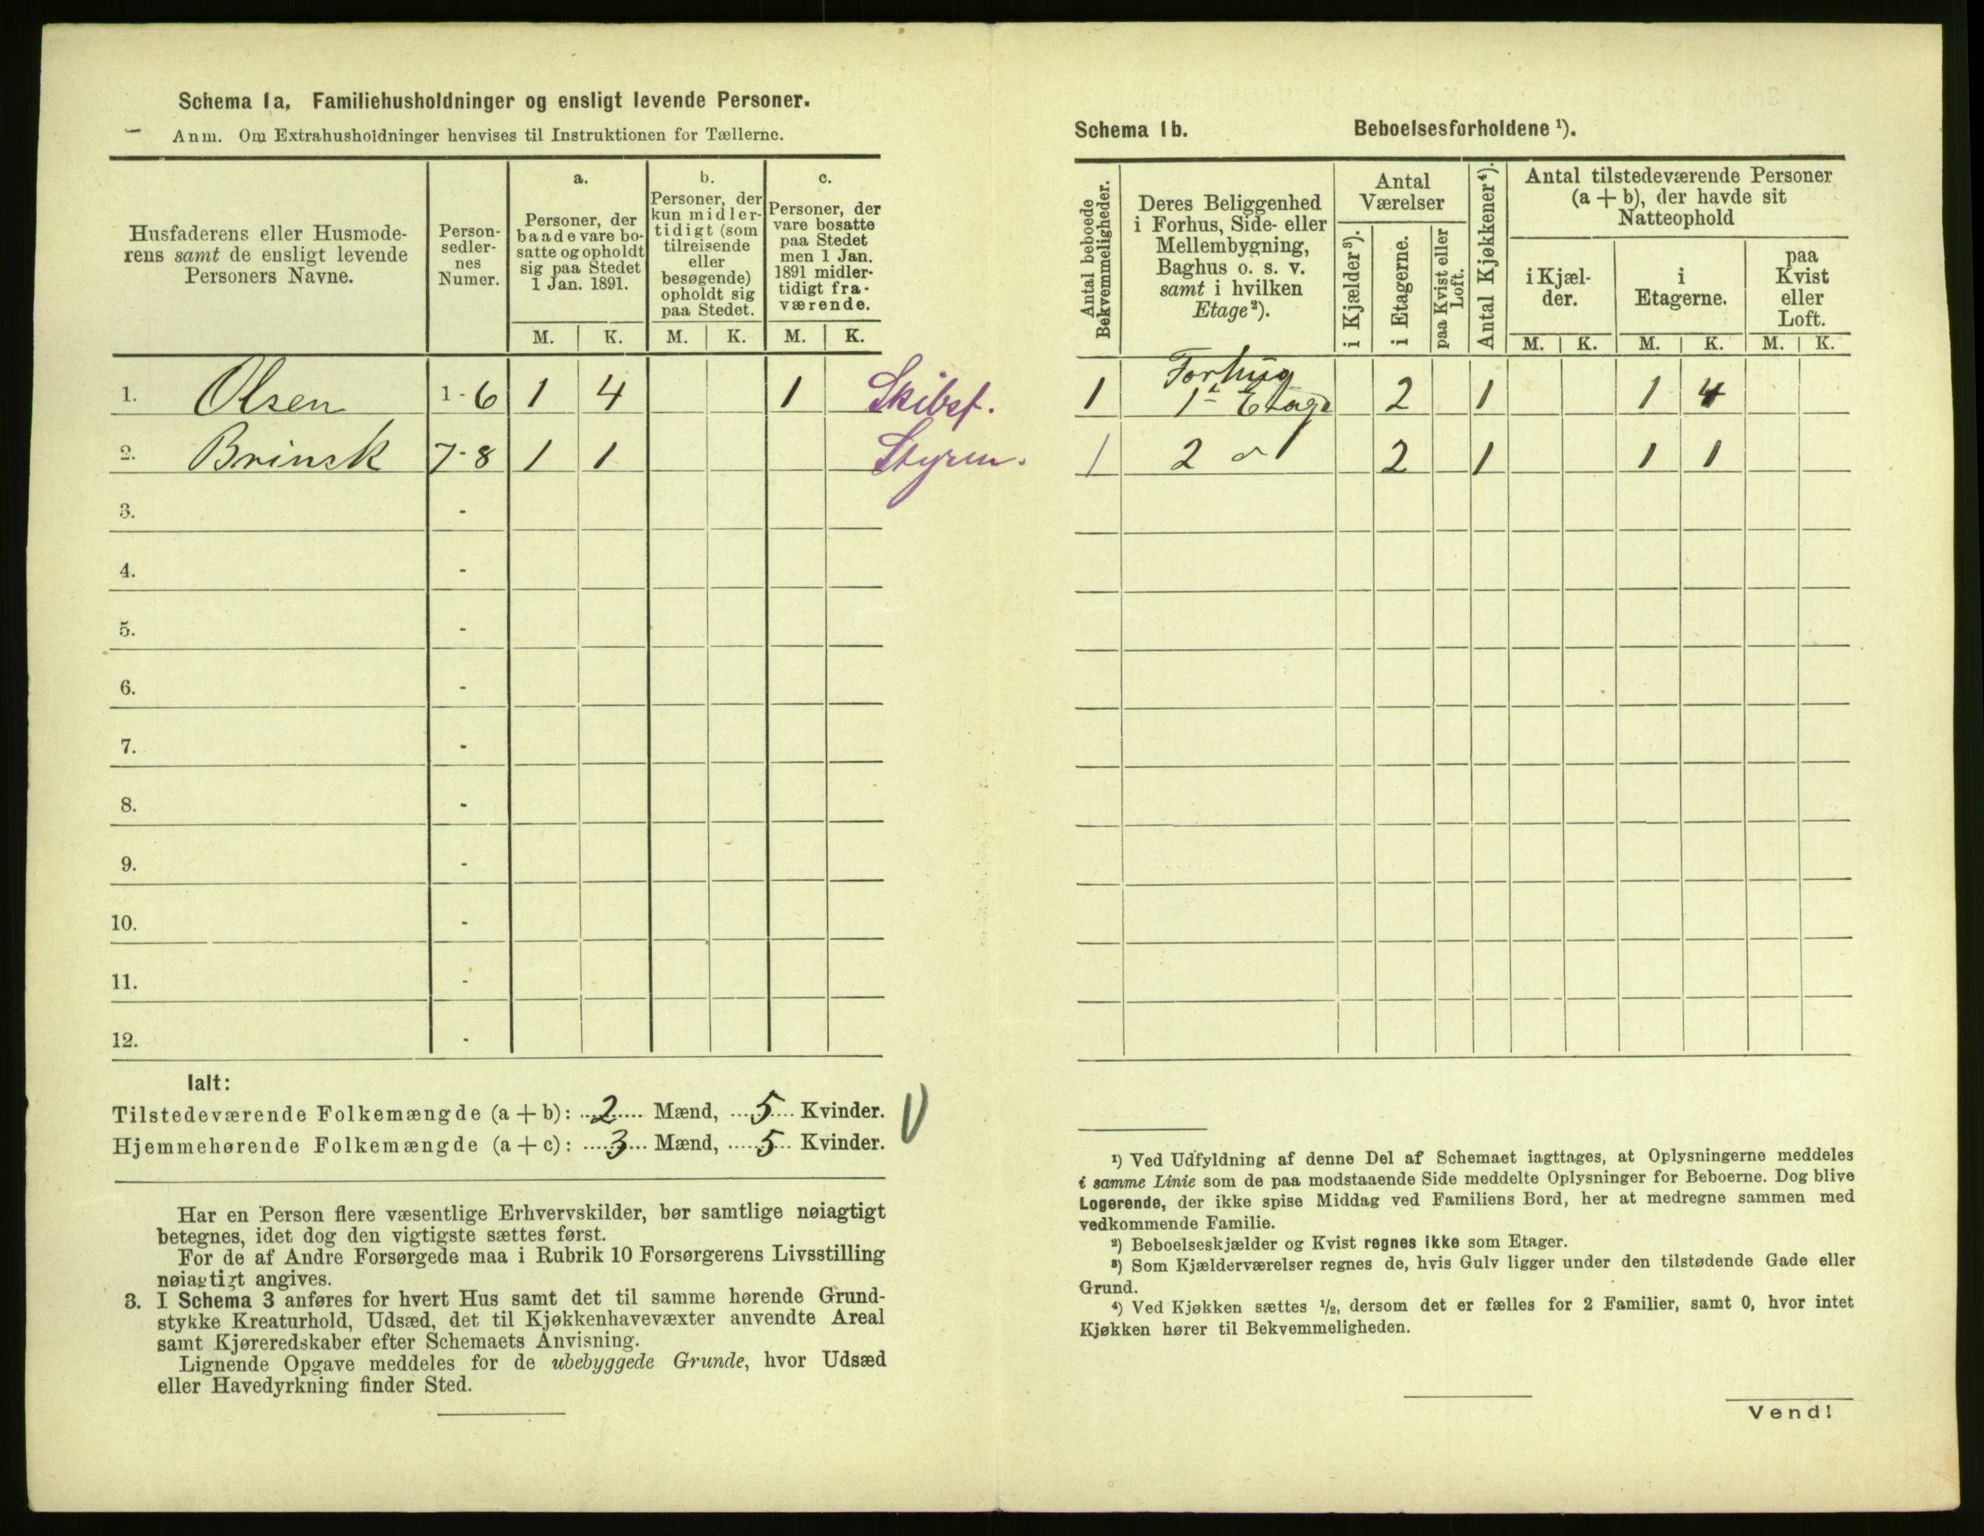 Schema 1a. Familiehusholdninger og ensligt levende Personer.
Anm. Om Extrahusholdninger henvises til Instruktionen for Tællerne.
Husfaderens eller Husmoderens samt de ensligt levende Personers Navne.
Personsedlernes Numer.
a. Personer, der baade vare bosatte og opholdt sig paa Stedet 1 Jan. 1891.
b. Personer, der kun midlertidigt (som tilreisende eller besøgende) opholdt sig paa Stedet.
c. Personer, der vare bosatte paa Stedet men 1 Jan. 1891 midlertidigt fraværende.
M. K. M. K. M. K.
1. Olsen 1-6 1 4 1 Skibsf.
2. Brinsk 7-8 1 1 Styrm.
3. -
4. -
5. -
6. -
7. -
8. -
9. -
10. -
11. -
12. -
Ialt:
Tilstedeværende Folkemængde (a+b): 2 Mænd, 5 Kvinder.
Hjemmehørende Folkemængde (a+c): 3 Mænd, 5 Kvinder.
Har en Person flere væsentlige Erhvervskilder, bør samtlige nøiagtigt
betegnes, idet dog den vigtigste sættes først.
For de af Andre Forsørgede maa i Rubrik 10 Forsørgerens Livsstilling
nøiagtigt angives.
3. I Schema 3 anføres for hvert Hus samt det til samme hørende Grund-
stykke Kreaturhold, Udsæd, det til Kjøkkenhavevæxter anvendte Areal
samt Kjøreredskaber efter Schemaets Anvisning.
Lignende Opgave meddeles for de ubebyggede Grunde, hvor Udsæd
eller Havedyrkning finder Sted.
Schema 1b. Beboelsesforholdene ¹).
Antal beboede Bekvemmeligheder.
Deres Beliggenhed i Forhus, Side- eller Mellembygning, Baghus o. s. v. samt i hvilken Etage²).
Antal Værelser
i Kjælder³).
i Etagerne.
paa Kvist eller Loft.
Antal Kjøkkener⁴).
Antal tilstedeværende Personer (a+b), der havde sit Natteophold
i Kjælder.
i Etagerne.
paa Kvist eller Loft.
M. K. M. K. M. K.
1 Forhus 1ᵗ Etage 2 1 1 4
1 2 2 1 1 1
¹) Ved Udfyldning af denne Del af Schemaet iagttages, at Oplysningerne meddeles
i samme Linie som de paa modstaaende Side meddelte Oplysninger for Beboerne. Dog blive
Logerende, der ikke spise Middag ved Familiens Bord, her at medregne sammen med
vedkommende Familie.
²) Beboelseskjælder og Kvist regnes ikke som Etager.
³) Som Kjælderværelser regnes de, hvis Gulv ligger under den tilstødende Gade eller
Grund.
⁴) Ved Kjøkken sættes ¹/₂, dersom det er fælles for 2 Familier, samt 0, hvor intet
Kjøkken hører til Bekvemmeligheden.
Vend!